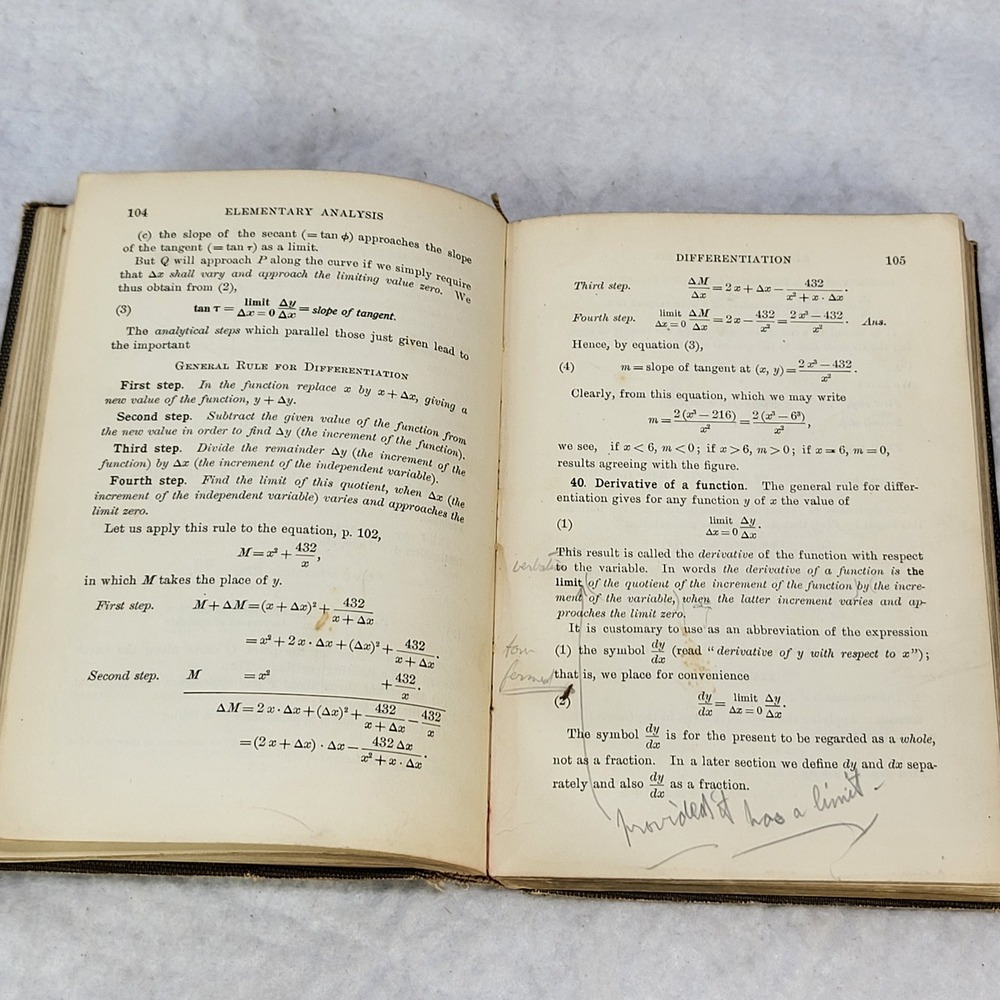 104 ELEMENTARY ANALYSIS
(c) the slope of the secant (= tan ϕ) approaches the slope
of the tangent (= tan τ) as a limit.
But Q will approach P along the curve if we simply require
that Δx shall vary and approach the limiting value zero. We
thus obtain from (2),
(3) tan τ = limit Δx = 0 Δy/Δx = slope of tangent.
The analytical steps which parallel those just given lead to
the important
GENERAL RULE FOR DIFFERENTIATION
First step. In the function replace x by x + Δx, giving a
new value of the function, y + Δy.
Second step. Subtract the given value of the function from
the new value in order to find Δy (the increment of the function).
Third step. Divide the remainder Δy (the increment of the
function) by Δx (the increment of the independent variable).
Fourth step. Find the limit of this quotient, when Δx (the
increment of the independent variable) varies and approaches the
limit zero.
Let us apply this rule to the equation, p. 102,
M = x² + 432/x,
in which M takes the place of y.
First step. M + ΔM = (x + Δx)² + 432/(x + Δx)
= x² + 2 x · Δx + (Δx)² + 432/(x + Δx).
Second step. M = x² + 432/x.
ΔM = 2 x · Δx + (Δx)² + 432/(x + Δx) − 432/x
= (2 x + Δx) · Δx − 432 Δx/(x² + x · Δx).
DIFFERENTIATION 105
Third step. ΔM/Δx = 2 x + Δx − 432/(x² + x · Δx).
Fourth step. limit Δx = 0 ΔM/Δx = 2 x − 432/x² = (2 x³ − 432)/x². Ans.
Hence, by equation (3),
(4) m = slope of tangent at (x, y) = (2 x³ − 432)/x².
Clearly, from this equation, which we may write
m = 2 (x³ − 216)/x² = 2 (x³ − 6³)/x²,
we see, if x < 6, m < 0; if x > 6, m > 0; if x = 6, m = 0,
results agreeing with the figure.
40. Derivative of a function. The general rule for differ-
entiation gives for any function y of x the value of
(1) limit Δx = 0 Δy/Δx.
This result is called the derivative of the function with respect
to the variable. In words the derivative of a function is the
limit of the quotient of the increment of the function by the incre-
ment of the variable, when the latter increment varies and ap-
proaches the limit zero.
It is customary to use as an abbreviation of the expression
(1) the symbol dy/dx (read "derivative of y with respect to x");
that is, we place for convenience
(2) dy/dx = limit Δx = 0 Δy/Δx.
The symbol dy/dx is for the present to be regarded as a whole,
not as a fraction. In a later section we define dy and dx sepa-
rately and also dy/dx as a fraction.
provided it has a limit.